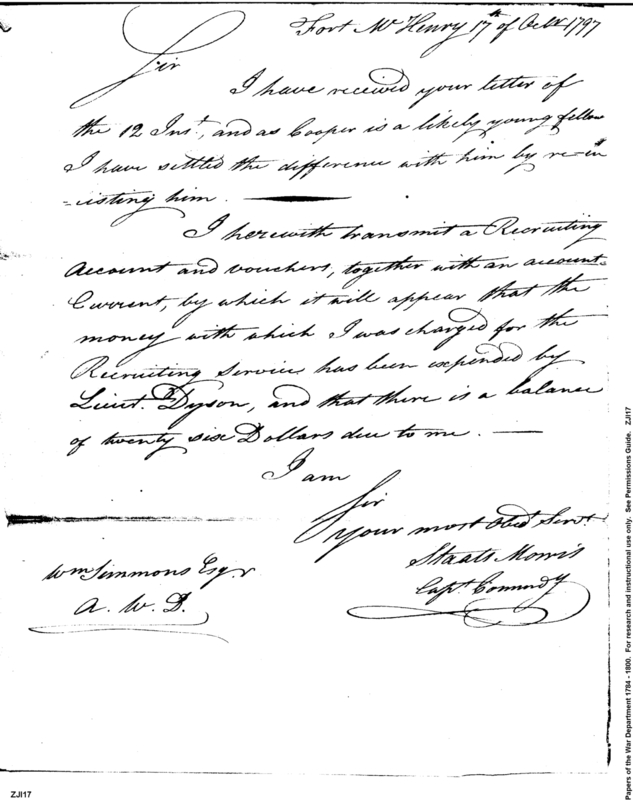 Fort McHenry 17th of Octr 1797
Sir
I have received your letter of
the 12 Inst, and as Cooper is a likely young fellow
I have settled the difference with him by re=in
=listing him.
I herewith transmit a Recruiting
Account and vouchers, together with an account
Current, by which it will appear that the
money with which I was charged for the
Recruiting Service has been expended by
Lieut. Dyson, and that there is a balance
of twenty six Dollars due to me. —
I am
Sir
your most Obedt Servt
Staats Morris
Capt. Commndg
Wm Simmons Esqr
A. W. D.
Papers of the War Department 1784 - 1800. For research and instructional use only. See Permissions Guide. ZJI17
ZJI17